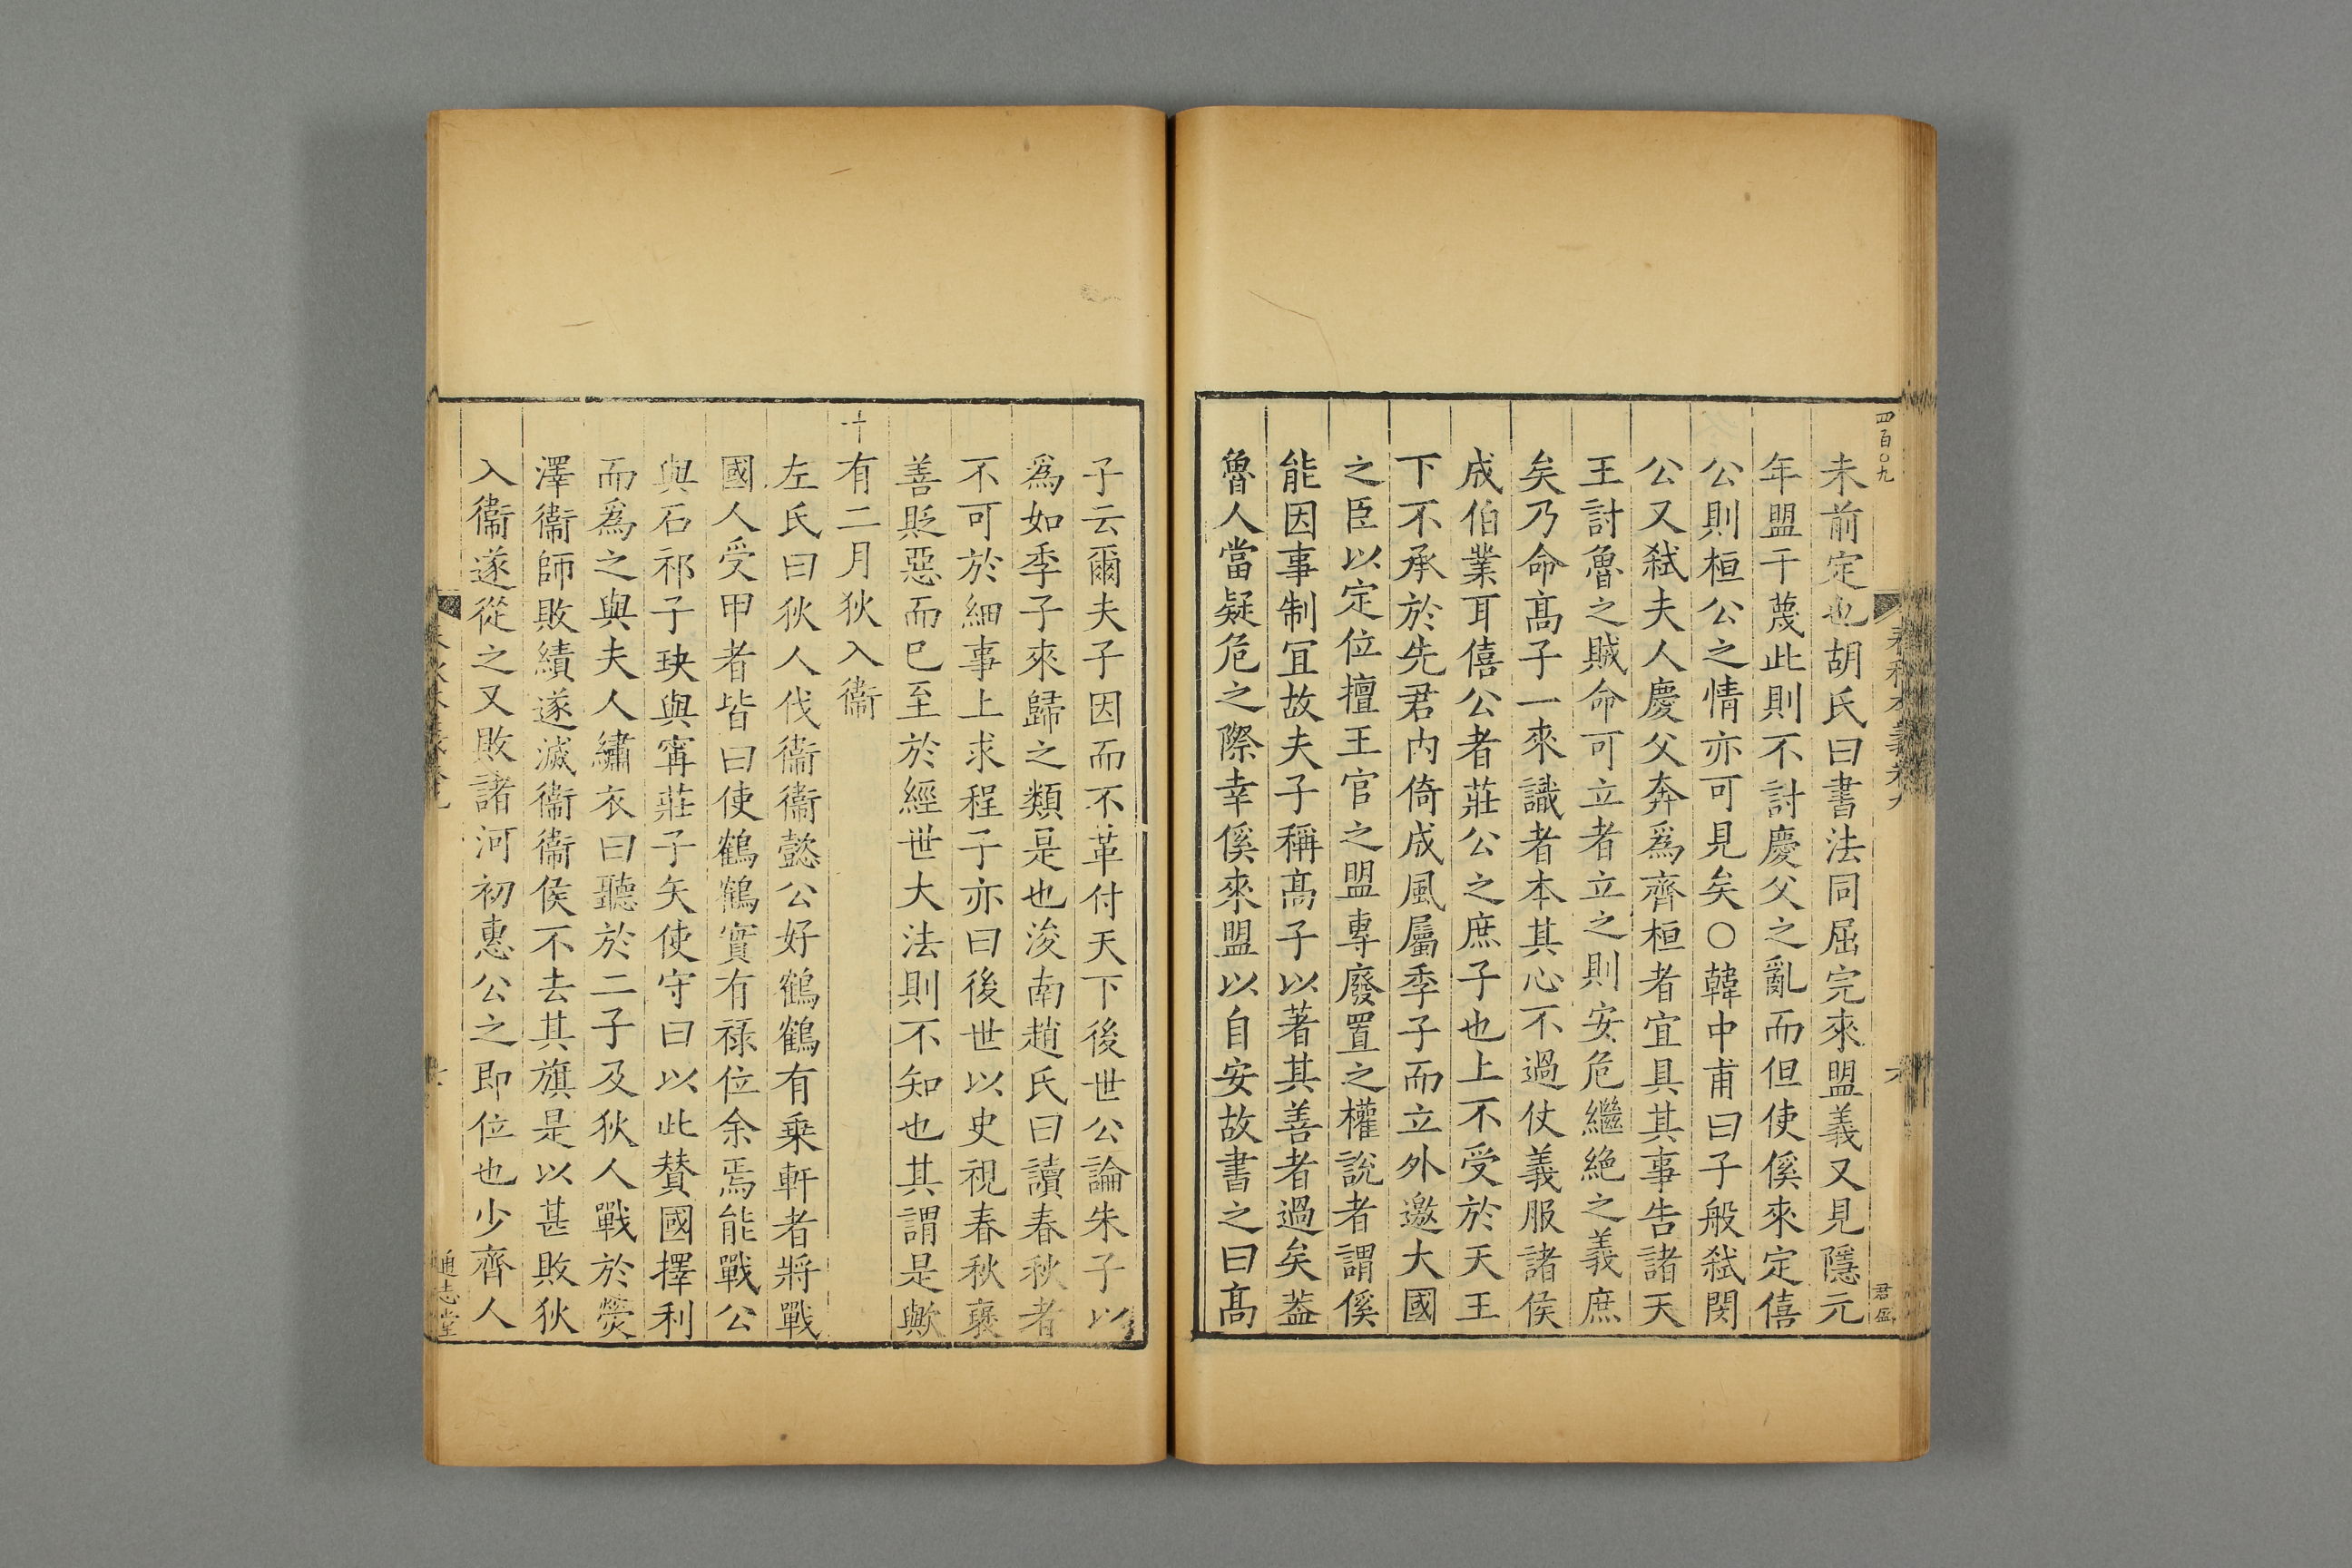 四百〇九
未前定也胡氏曰書法同屈完來盟義又見隱元
年盟于蔑此則不討慶父之亂而但使傒來定僖
公則桓公之情亦可見矣○韓中甫曰子般弑閔
公又弑夫人慶父奔爲齊桓者宜具其事告諸天
王討魯之賊命可立者立之則安危繼絶之義庶
矣乃命髙子一來識者本其心不過仗義服諸侯
成伯業耳僖公者莊公之庶子也上不受於天王
下不承於先君内倚成風屬季子而立外邀大國
之臣以定位擅王官之盟專廢置之權說者謂傒
能因事制宜故夫子稱髙子以著其善者過矣葢
魯人當疑危之際幸傒來盟以自安故書之曰髙
子云爾夫子因而不革付天下後世公論朱子以
爲如季子來歸之類是也浚南趙氏曰讀春秋者
不可於細事上求程子亦曰後世以史視春秋襃
善貶惡而已至於經世大法則不知也其謂是歟
十有二月狄入衞
左氏曰狄人伐衞衞懿公好鶴鶴有乗軒者將戰
國人受甲者皆曰使鶴鶴實有禄位余焉能戰公
與石祁子玦與甯莊子矢使守曰以此賛國擇利
而爲之與夫人繡衣曰聽於二子及狄人戰於熒
澤衞師敗績遂滅衞衞侯不去其旗是以甚敗狄
入衞遂從之又敗諸河初惠公之即位也少齊人
通志堂